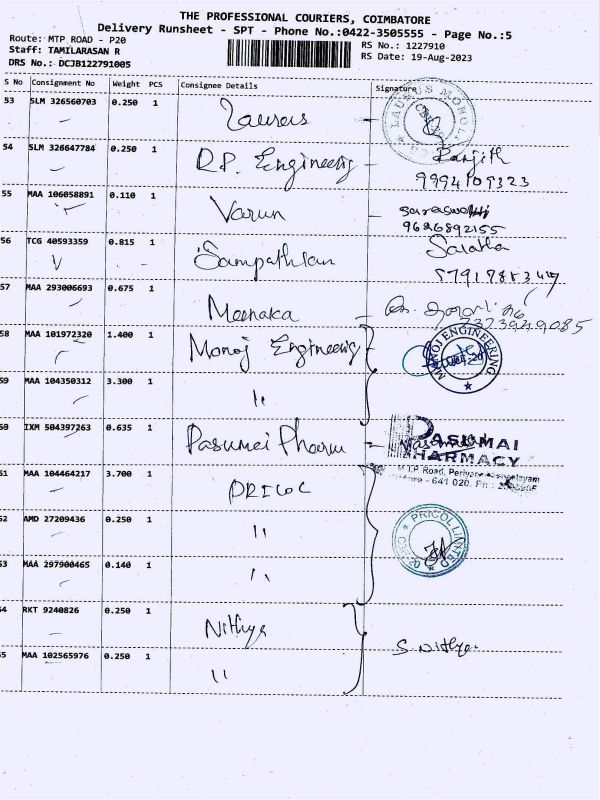 THE PROFESSIONAL COURIERS, COIMBATORE
Delivery Runsheet - SPT - Phone No.:0422-3505555 - Page No.:5
Route: MTP ROAD - P20
Staff: TAMILARASAN R
DRS No.: DCJB122791005
RS No.: 1227910
RS Date: 19-Aug-2023
S No Consignment No Weight PCS Consignee Details Signature
53 SLM 326560703 0.250 1 Laurus
54 SLM 326647784 0.250 1 R.P. Engineering Ranjith
9994109323
55 MAA 106058891 0.110 1 Varun saraswathi
9626892155
56 TCG 40593359 0.815 1 Sampathram Saratha
57 MAA 293006693 0.675 1 Meenaka
7373949085
58 MAA 101972320 1.400 1 Manoj Engineering MANOJ ENGINEERING
59 MAA 104350312 3.300 1 "
60 IXM 504397263 0.635 1 Pasumai Pharm PASUMAI
PHARMACY
61 MAA 104464217 3.700 1 PRICOL
M.T.P. Road,
- 641 020.
62 AMD 27209436 0.250 1 " PRICOL LIMITED
63 MAA 297900465 0.140 1 "
64 RKT 9240826 0.250 1 Nithya S. Nithya
65 MAA 102565976 0.250 1 "